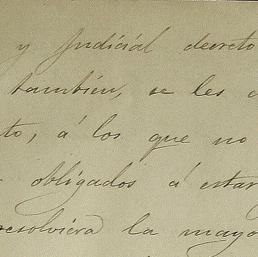 y Judicial decreto
también, se les
to, á los que no
obligados á estar
resolviera la mayo